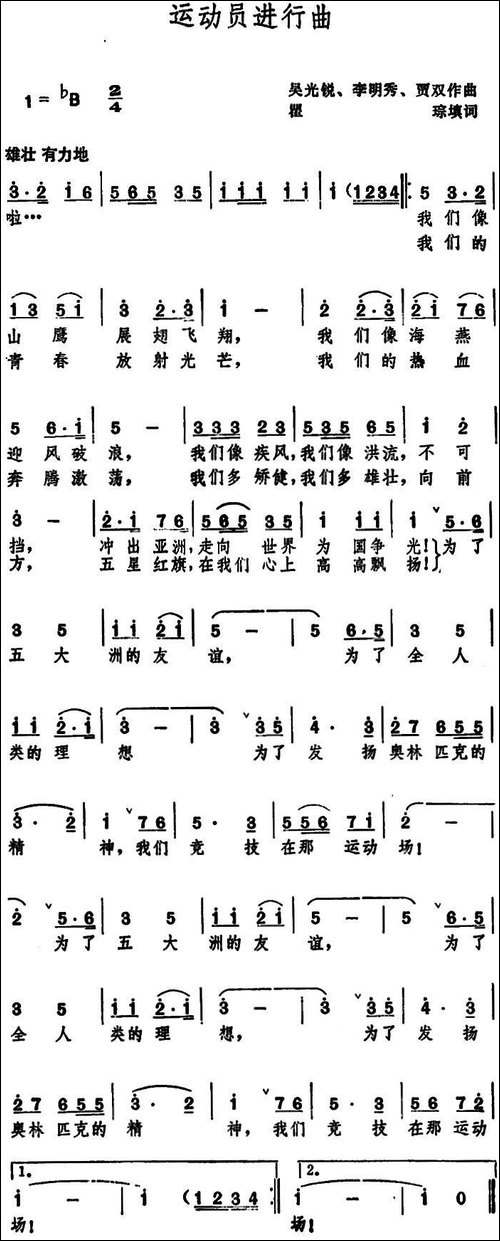 运动员进行曲
1=♭B 2/4
吴光锐、李明秀、贾双作曲
瞿琮填词
雄壮 有力地
3·2 i6 | 565 35 | iii ii | i (1234 :| 5 3·2 |
啦… 我们像
我们的
13 5i | 3 2·3 | i - | 2 2·3 | 2i 76 |
山鹰 展翅飞翔, 我们像海燕
青春 放射光芒, 我们的热血
5 6·i | 5 - | 333 23 | 535 65 | i 2 |
迎风破浪, 我们像疾风,我们像洪流,不可
奔腾激荡, 我们多矫健,我们多雄壮,向前
3 - | 2·i 76 | 565 35 | i ii | i 5·6 |
挡, 冲出亚洲,走向世界为国争光!为了
方, 五星红旗,在我们心上高高飘扬!
3 5 | ii 2i | 5 - | 5 6·5 | 3 5 |
五大洲的友谊, 为了全人
ii 2·i | 3 - | 3 35 | 4· 3 | 27 655 |
类的理想 为了发扬奥林匹克的
3· 2 | i 76 | 5· 3 | 556 7i | 2 - |
精神,我们竞技在那运动场!
2 5·6 | 3 5 | ii 2i | 5 - | 5 6·5 |
为了五大洲的友谊, 为了
3 5 | ii 2·i | 3 - | 3 35 | 4· 3 |
全人类的理想, 为了发扬
27 655 | 3· 2 | i 76 | 5· 3 | 56 72 |
奥林匹克的精神,我们竞技在那运动
1. 2.
i - | i (1234 :| i - | i 0 ‖
场! 场!